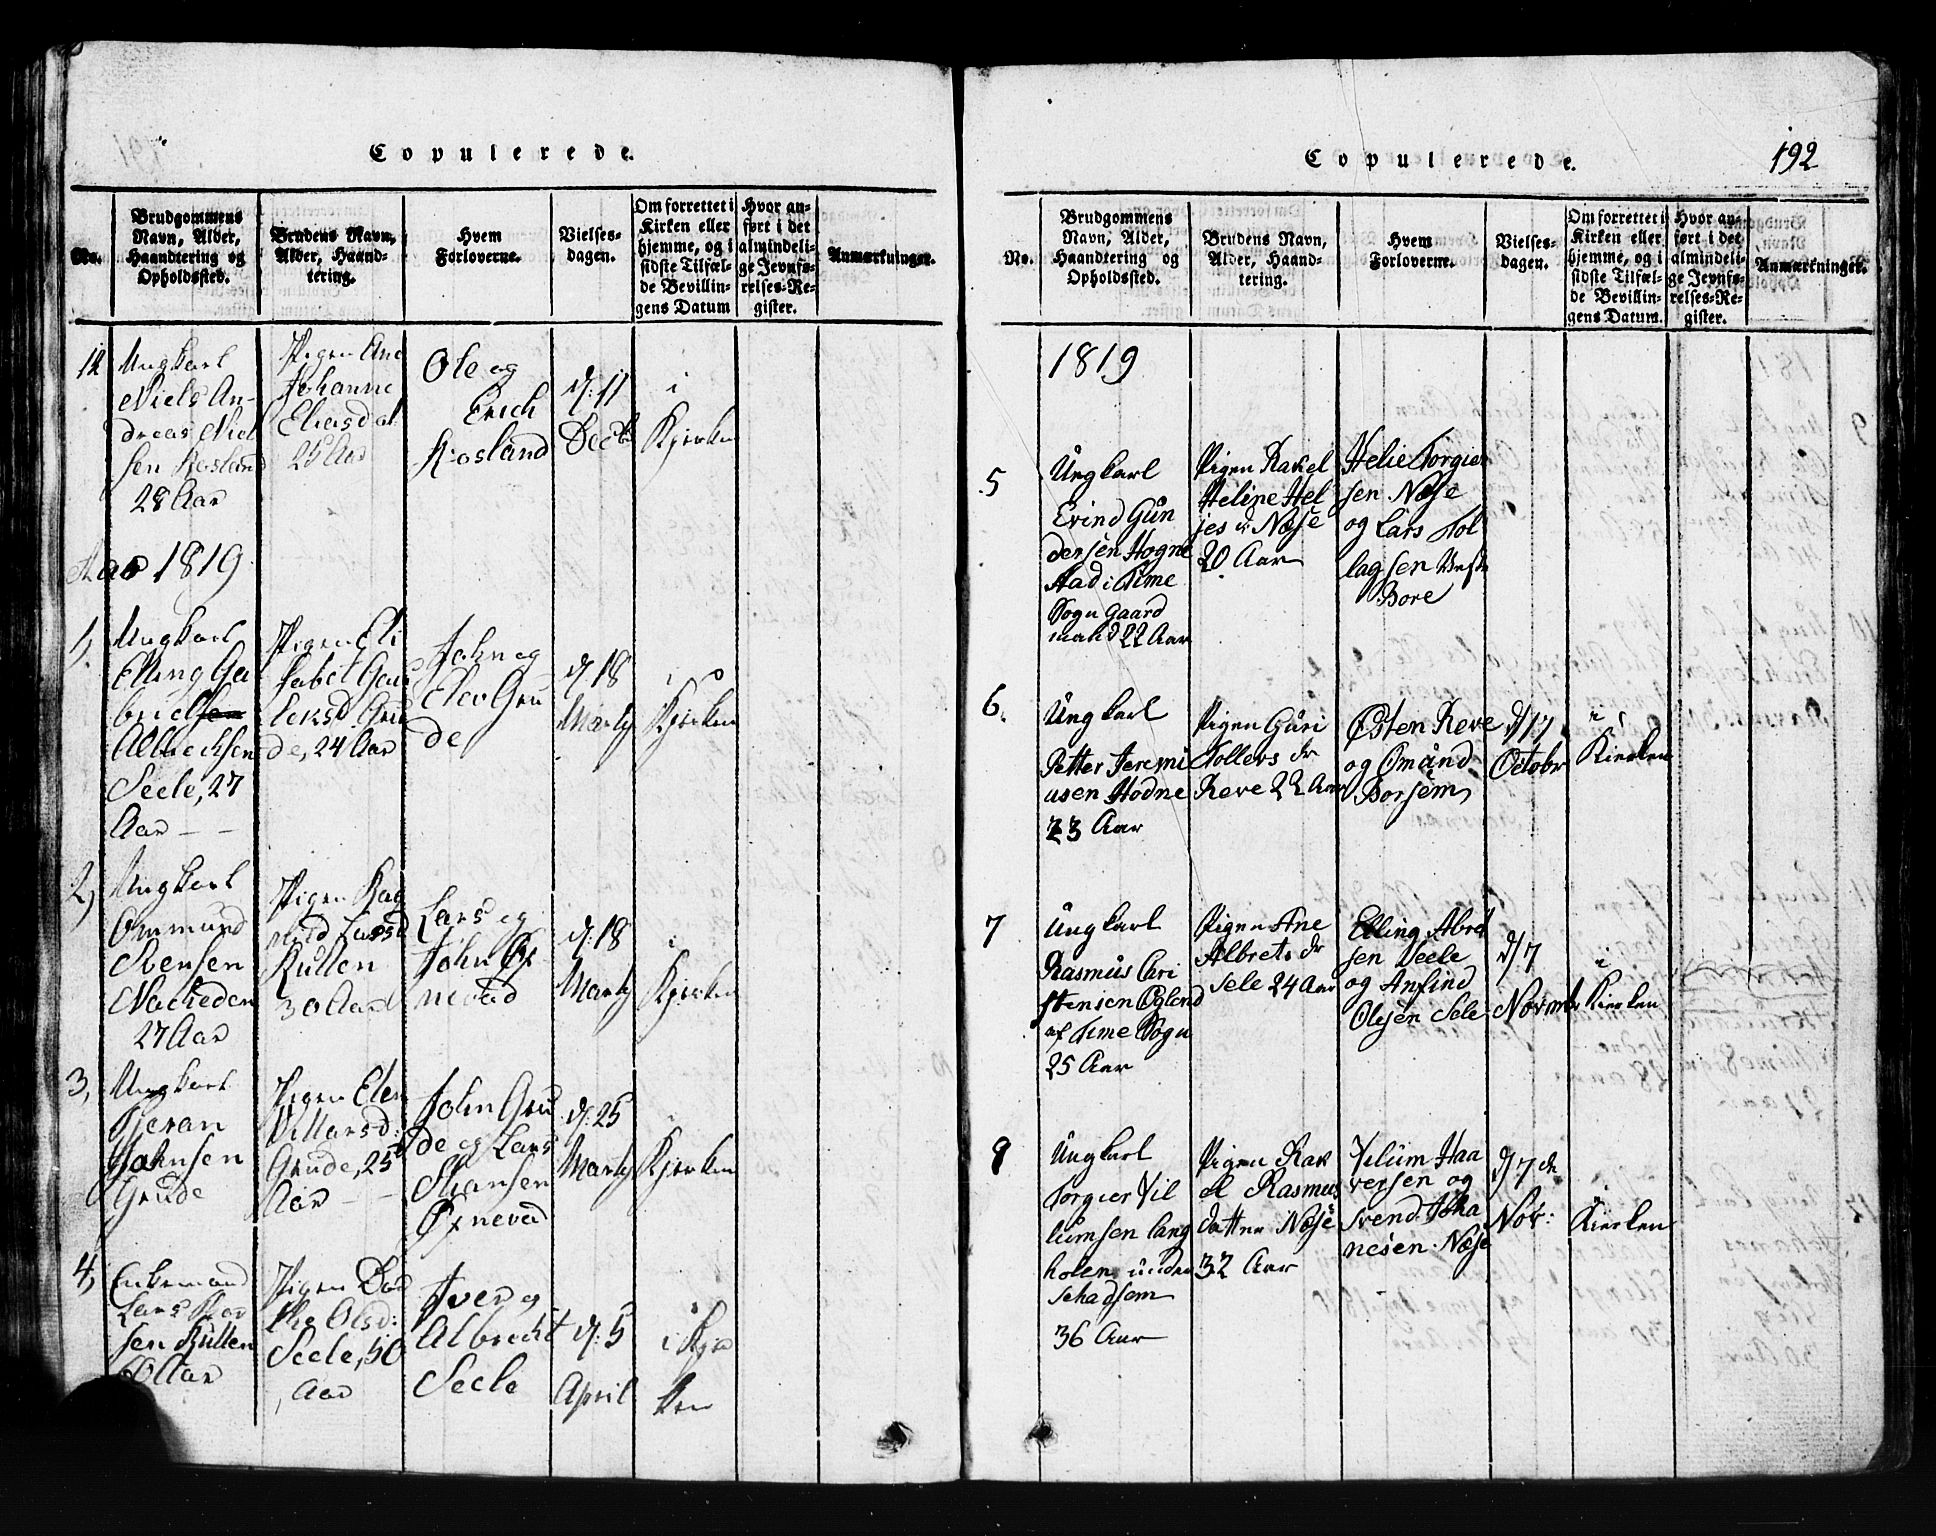 Copulerede.
No.
Brudgommens
Navn, Alder,
Haandtering og
Opholdssted.
Brudens Navn,
Alder, Haand-
tering.
Hvem
Forloverne.
Vielses-
dagen.
Om forrettet i
Kirken eller
hjemme, og i
sidste Tilfæl-
de Bevillin-
gens Datum
Hvor an-
ført i det
almindeli-
ge Jevnfø-
relses-Re-
gister.
Anmærkninger.
Ungkarl
Niels An-
dreas Niel
sen Rosland
28 Aar
Pigen Ane
Johanne
Eliasdat
25 Aar
Ole og
Erich
Rosland
d: 11
Decb
i
Kjerken
Aar 1819
1,
Ungkarl
Elling Ga
briel
Albrecksen
Seele, 27
Aar - -
Pigen Eli
sabet Gau
leksd Gru
de, 24 Aar
John og
Elev Gru
de
d: 18
Marty
i
Kjerken
2,
Ungkarl
Ommund
Svensen
27 Aar
Pigen Rag
nild Larsd
Kullen
30 Aar
Lars og
John Øx
nevad
d: 18
Marty
i
Kjerken
3,
Ungkarl
Pjeran
Johnsen
Grude
Pigen Elen
Villarsd:
Grude, 25
Aar - -
John Gru
de og Lars
Øxnevad
d: 25
Marty
i
Kjerken
4,
Enkemand
Lars
sen Kullen
Aar
Pigen Dor
the Olsd:
Seele, 50
Aar
Iver og
Albrecht
Seele
d: 5
April
i Kjer
ken
Copulerede.
192
No.
Brudgommens
Navn, Alder,
Haandtering og
Opholdssted.
Brudens Navn,
Alder, Haand-
tering.
Hvem
Forloverne.
Vielses-
dagen.
Om forrettet i
Kirken eller
hjemme, og i
sidste Tilfæl-
de Bevillin-
gens Datum.
Hvor an-
ført i det
almindeli-
ge Jevnfø-
relses-Re-
gister.
Anmærkninger.
1819
5
Ungkarl
Evind Gun
dersen Hogne
stad i Time
Sogn Gaard
mand 22 Aar
Pigen Rakel
Heline Hel
jes dr Næse
20 Aar
Helie Torgier
sen Næse
og Lars Tol
lagsen Vest
Bore
6.
Ungkarl
Petter Jeremi
asen Hodne
23 Aar
Pigen Guri
Tollers dr
Reve 22 Aar
Østen Reve
og Omund
Borsem
d/17
Octobr
i
Kierken
7
Ungkarl
Rasmus Cri
stensen Øglend
af Time Sogn
25 Aar
Pigen Ane
Albrets dr
Sele 24 Aar
Elling Abret
sen Seele
og Anfind
Olesen Sele
d/7
Novmbr
i
Kierken
8
Ungkarl
Torgier Vil
lumsen Lang
holen under
Schadsem
36 Aar
Pigen Rak
el Rasmus
datter Næse
32 Aar
Velum Haa
versen og
Svend Joha
nesen Næse
d/7 de
Nov:
i
Kierken